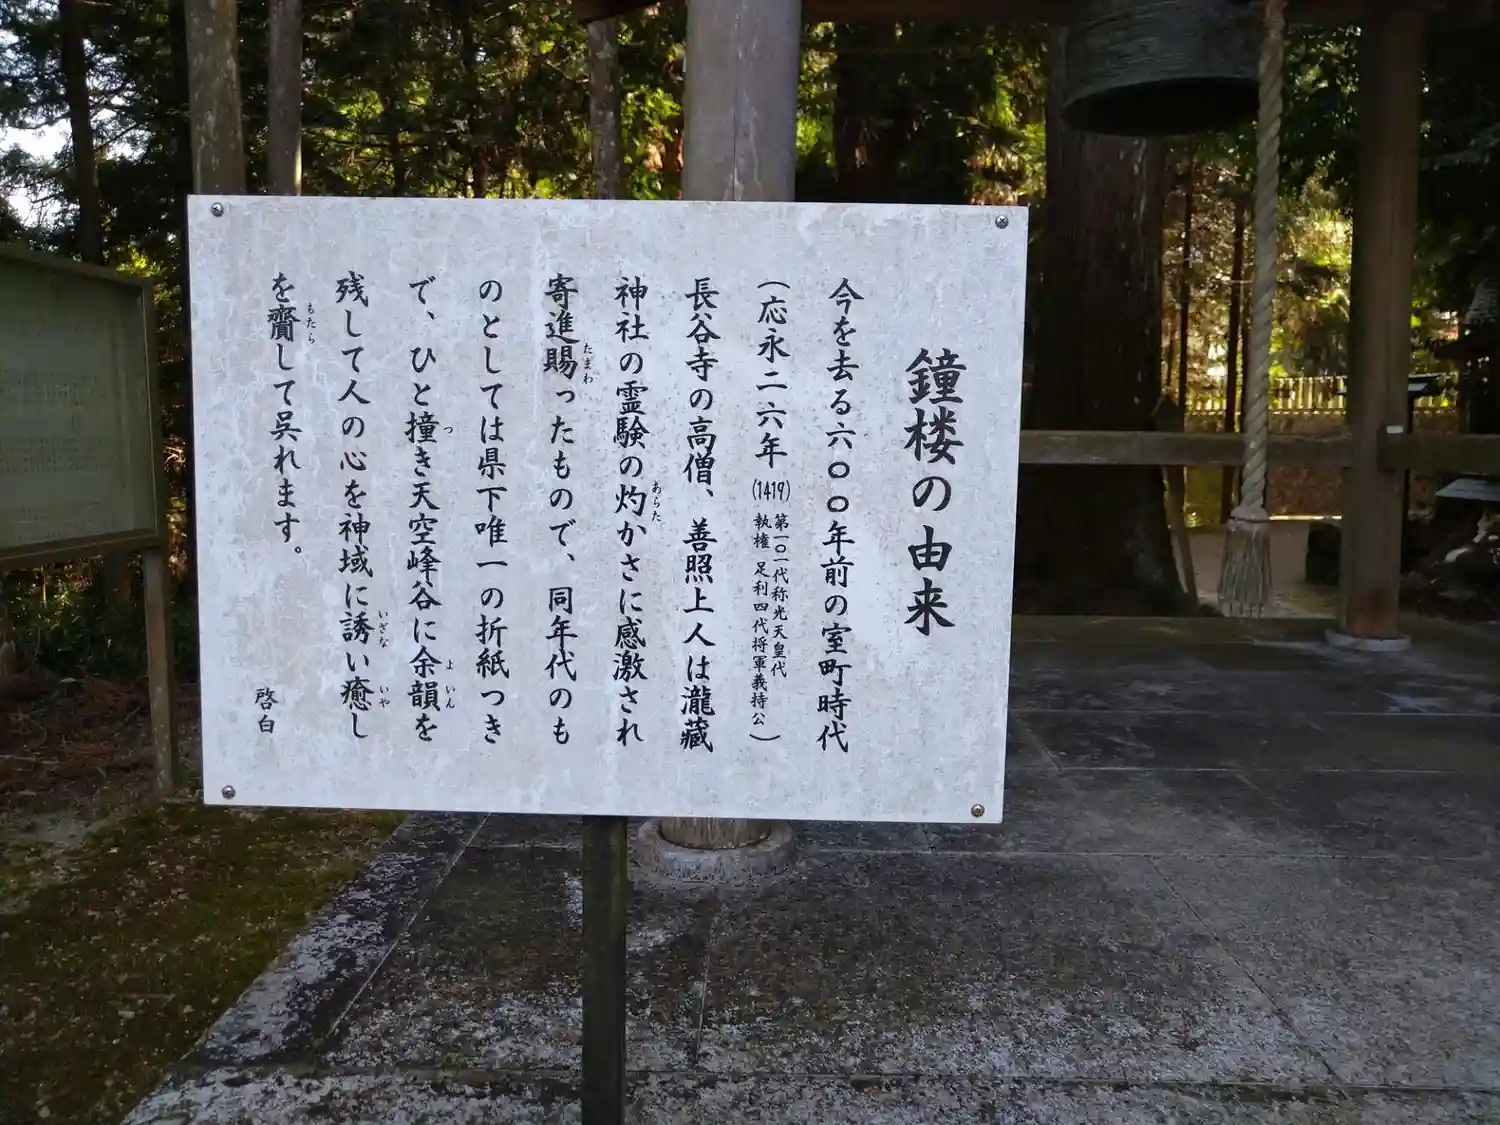 鐘楼の由来
今を去る六〇〇年前の室町時代
(応永二六年(1419)第一〇一代称光天皇代
執権 足利四代将軍義持公)
長谷寺の高僧、善照上人は瀧蔵
神社の霊験の灼かさに感激され
寄進賜ったもので、同年代のも
のとしては県下唯一の折紙つき
で、ひと撞き天空峰谷に余韻を
残して人の心を神域に誘い癒し
を齎して呉れます。
啓白
あらた
たまわ
つ
よいん
いざな
いや
もたら